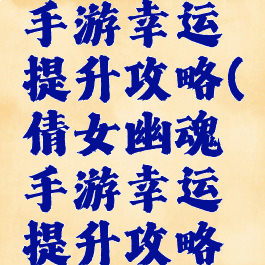 手游幸运
提升攻略(
倩女幽魂
手游幸运
提升攻略